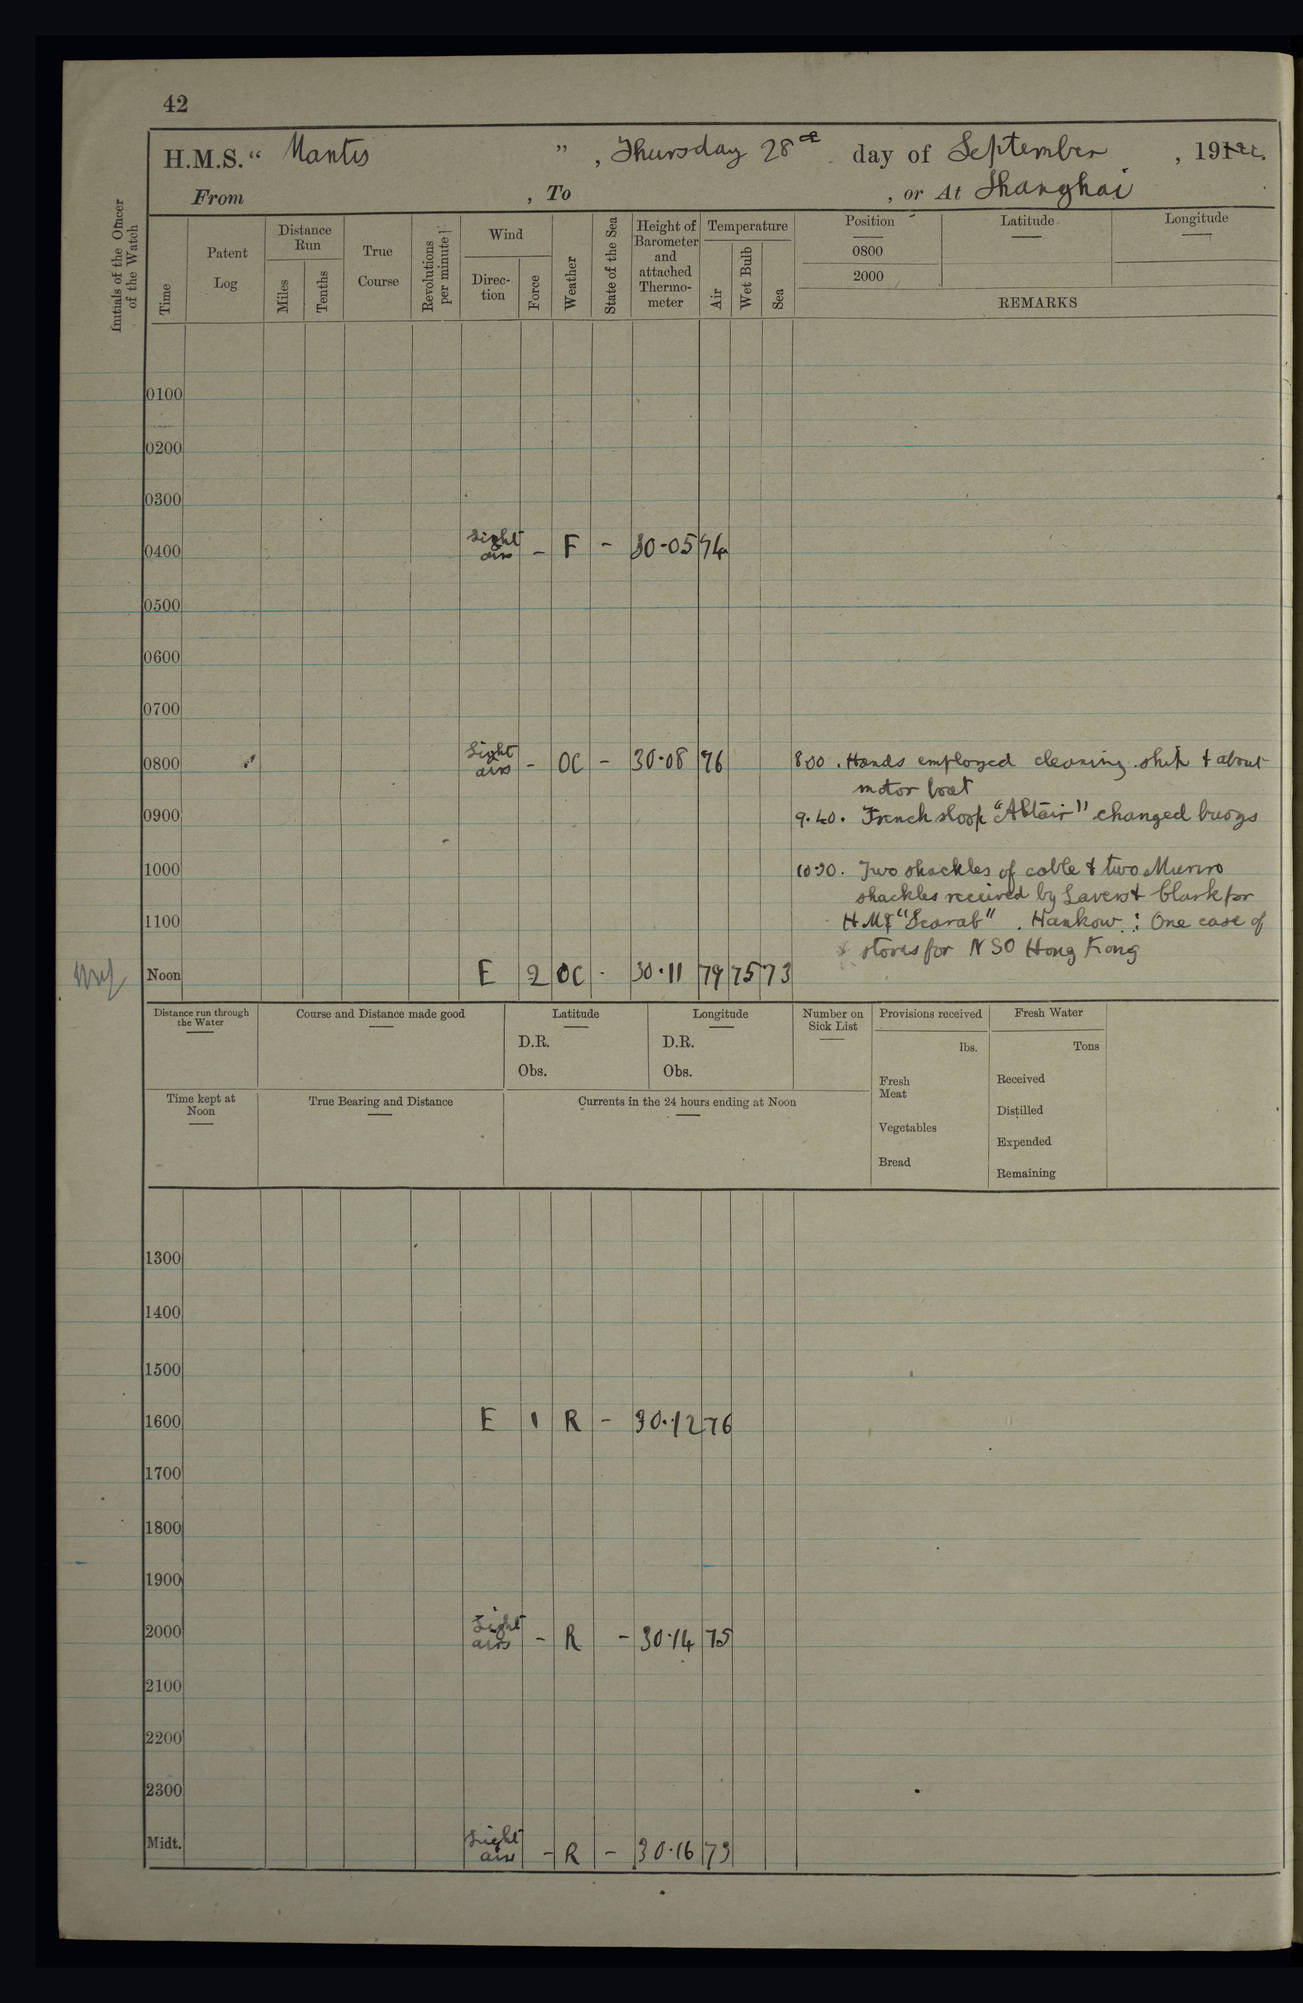 42
H.M.S. “ Mantis ” , Thursday 28th day of September , 1922.
From , To , or At Shanghai
Initials of the Officer of the Watch
Time
Patent Log
Distance Run
Miles
Tenths
True Course
Revolutions per minute
Wind
Direc-tion
Force
Weather
State of the Sea
Height of Barometer and attached Thermo-meter
Temperature
Air
Wet Bulb
Sea
Position
0800
2000
Latitude
Longitude
REMARKS
0100
0200
0300
0400 Light airs - F - 30.05 74
0500
0600
0700
0800 Light airs - OC - 30.08 76 8.00. Hands employed cleaning ship & about
motor boat
0900 9.40. French sloop "Altair" changed buoys
1000 10.30. Two shackles of cable & two Munro
shackles received by Lavers & Clark for
1100 HMS "Scarab". Hankow: One case of
stores for NSO Hong Kong
Noon E 2 OC - 30.11 79 75 73
Distance run through the Water
Course and Distance made good
Latitude
D.R.
Obs.
Longitude
D.R.
Obs.
Number on Sick List
Provisions received
lbs.
Fresh Meat
Vegetables
Bread
Fresh Water
Tons
Received
Distilled
Expended
Remaining
Time kept at Noon
True Bearing and Distance
Currents in the 24 hours ending at Noon
1300
1400
1500
1600 E 1 R - 30.12 76
1700
1800
1900
2000 Light airs - R - 30.14 75
2100
2200
2300
Midt. Light airs - R - 30.16 73